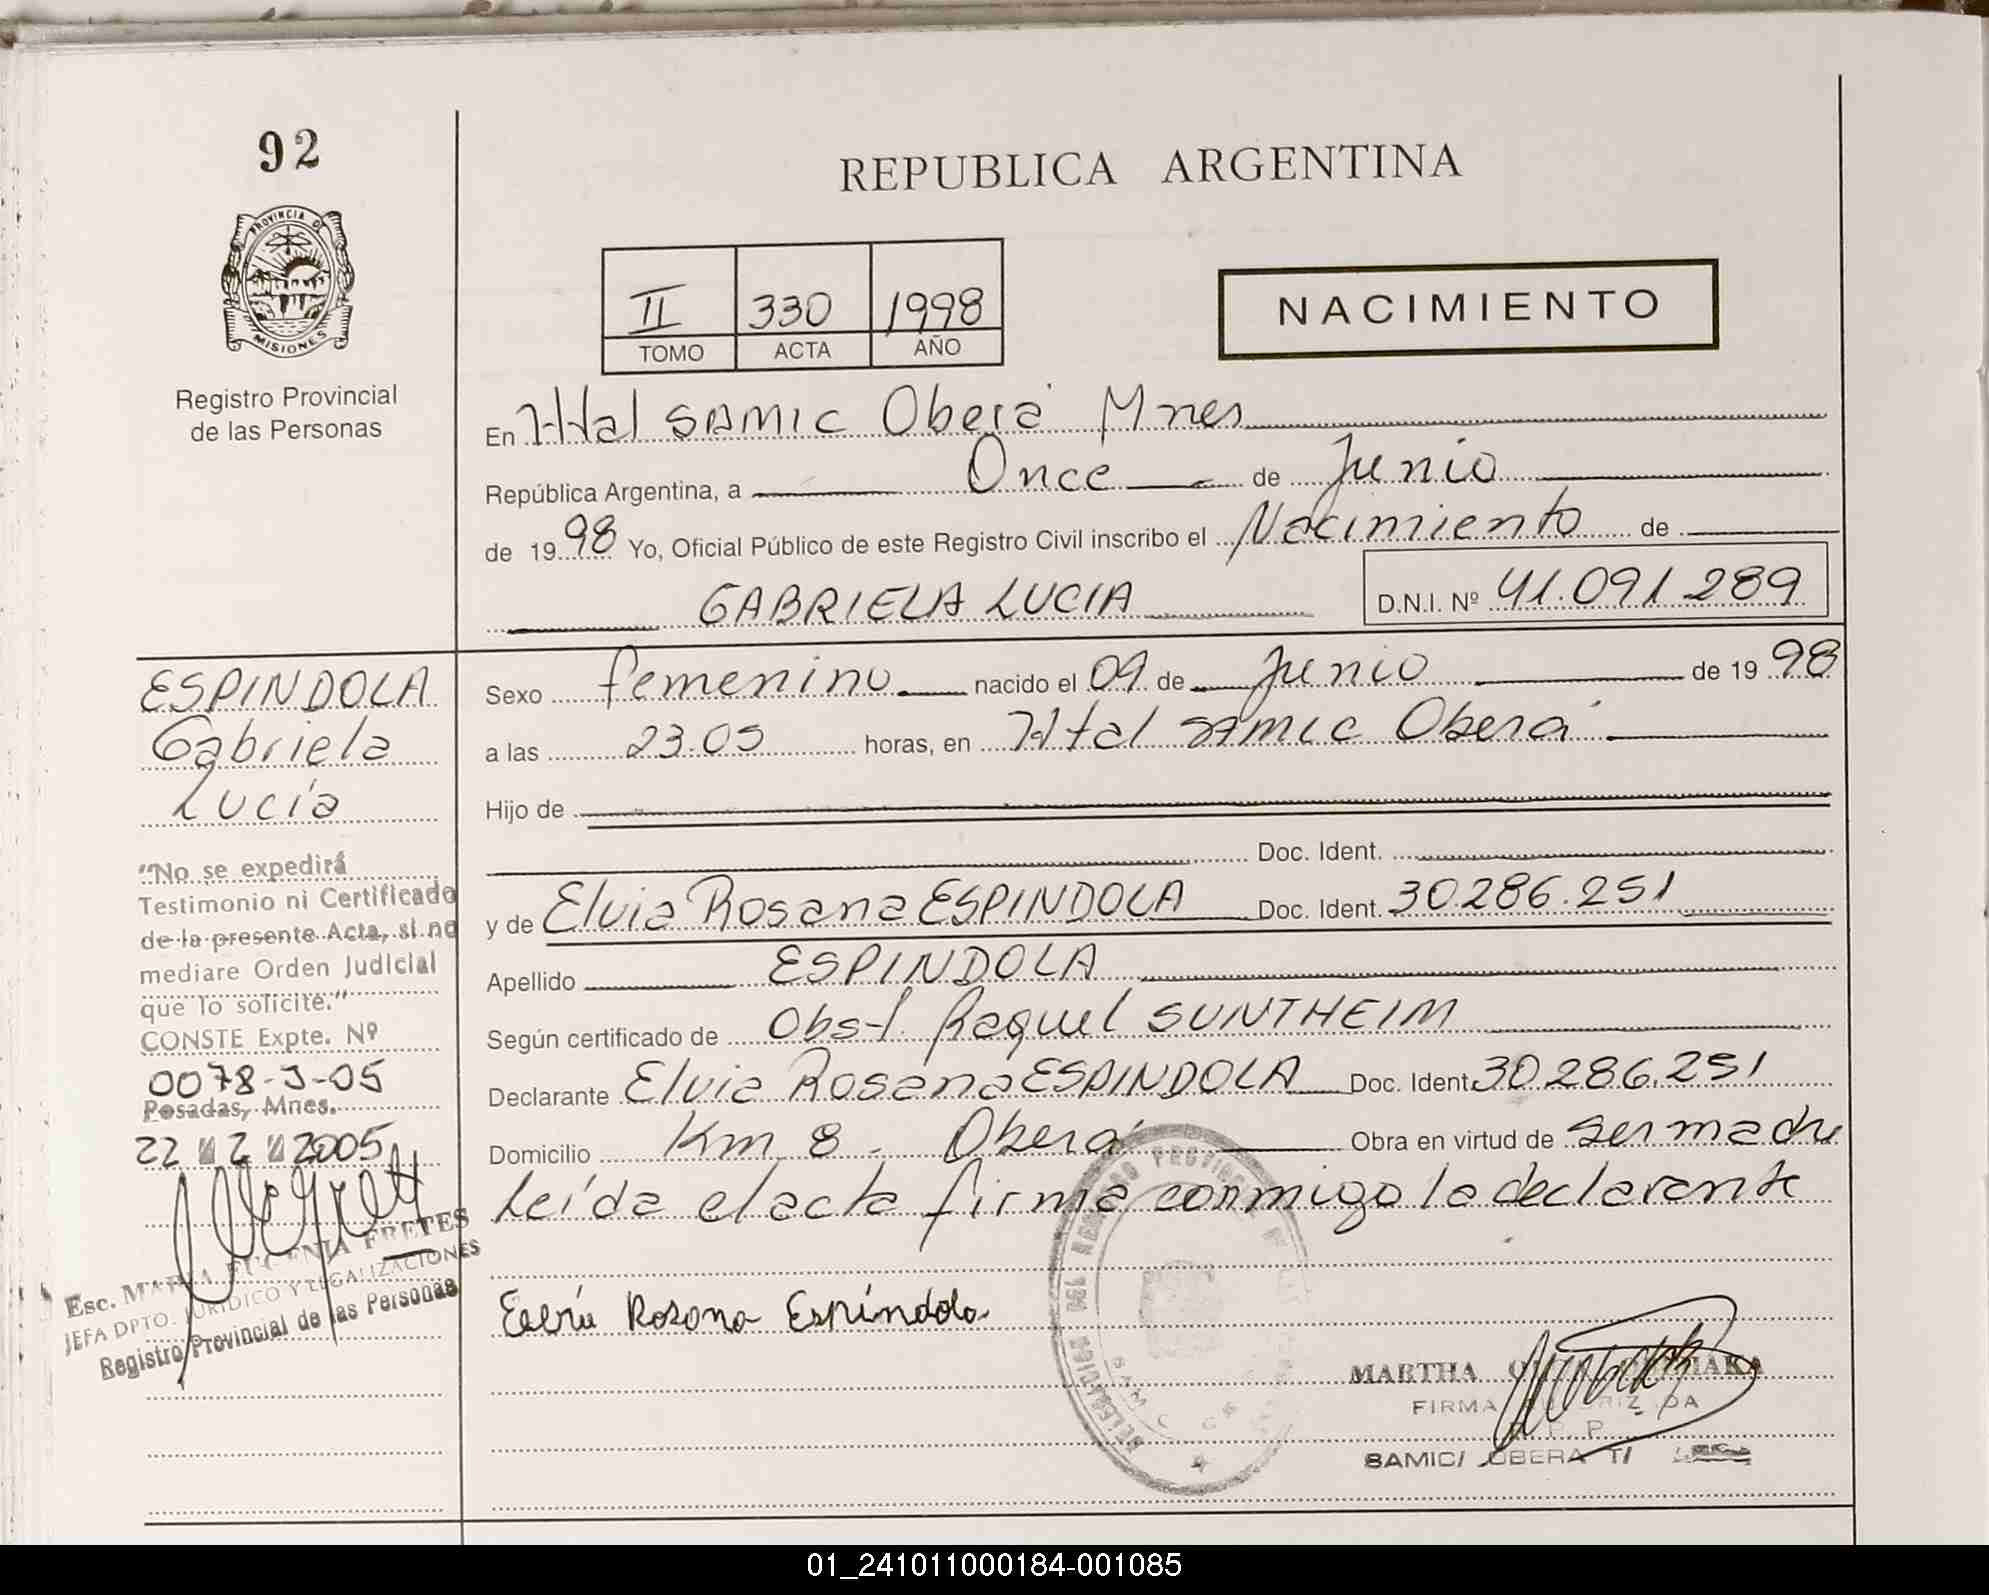 92
PROVINCIA DE
MISIONES
Registro Provincial
de las Personas
REPUBLICA ARGENTINA
II 330 1998
TOMO ACTA AÑO
NACIMIENTO
En Htal SAMIC Oberá Mnes
República Argentina, a Once de Junio
de 19 98 Yo, Oficial Público de este Registro Civil inscribo el Nacimiento de
GABRIELA LUCIA D.N.I. Nº 41.091.289
ESPINDOLA
Gabriela
Lucía
"No se expedirá
Testimonio ni Certificado
de la presente Acta, si no
mediare Orden Judicial
que lo solicite."
CONSTE Expte. Nº
0078-J-05
Posadas, Mnes.
22 2 2005
Esc. MARIA EUGENIA FRETES
JEFA DPTO. JURIDICO Y LEGALIZACIONES
Registro Provincial de las Personas
Sexo femenino nacido el 09 de Junio de 19 98
a las 23.05 horas, en Htal SAMIC Oberá
Hijo de
Doc. Ident.
y de Elvia Rosana ESPINDOLA Doc. Ident. 30.286.251
Apellido ESPINDOLA
Según certificado de Obst. Raquel SUNTHEIM
Declarante Elvia Rosana ESPINDOLA Doc. Ident. 30.286.251
Domicilio Km 8 - Oberá Obra en virtud de ser madre
Leída el acta firma conmigo la declarante
Rosana Espíndola
MARTHA
FIRMA AUTORIZADA
R. P. P.
SAMIC/ OBERA T/
01_241011000184-001085